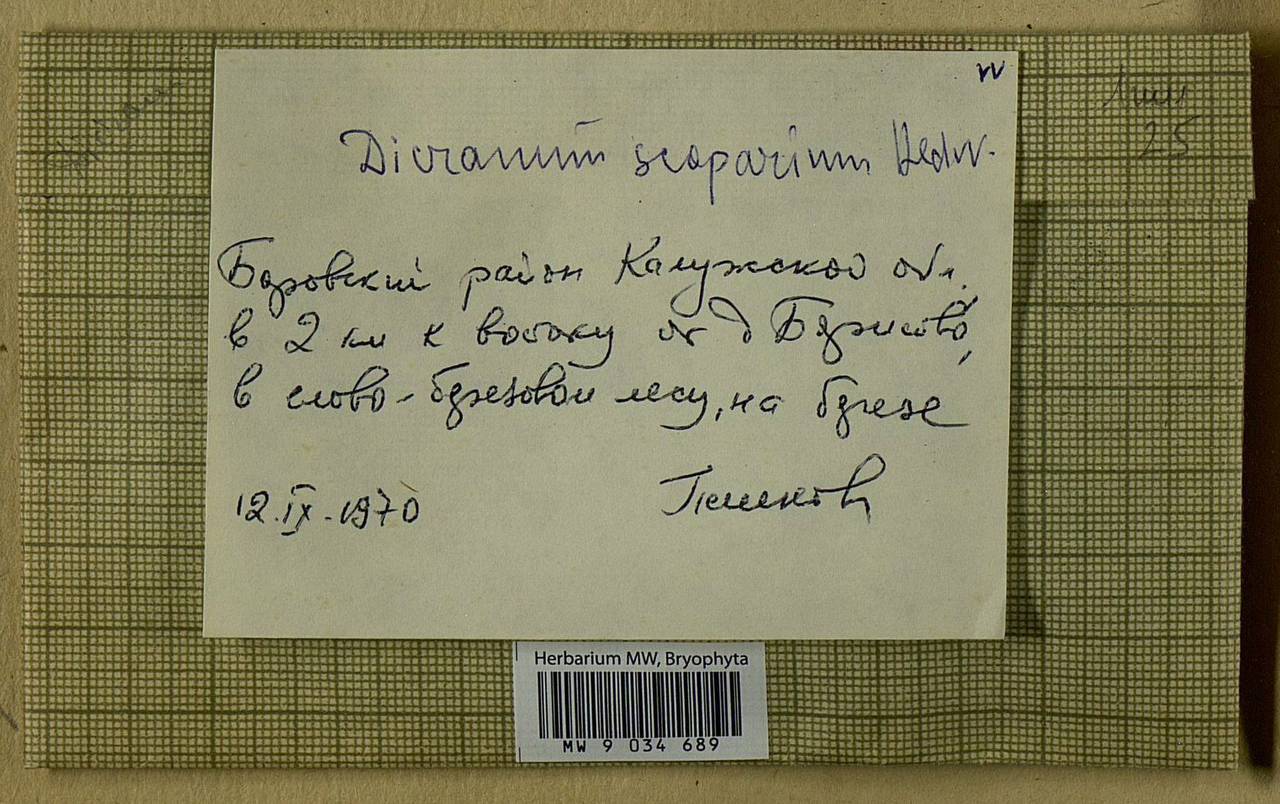 Dicranum scoparium Hedw.
Боровский район Калужской обл.
в 2 км к востоку от д
в елово-березовом лесу, на березе
12.IX.1970
Herbarium MW, Bryophyta
MW 9 034 689
25